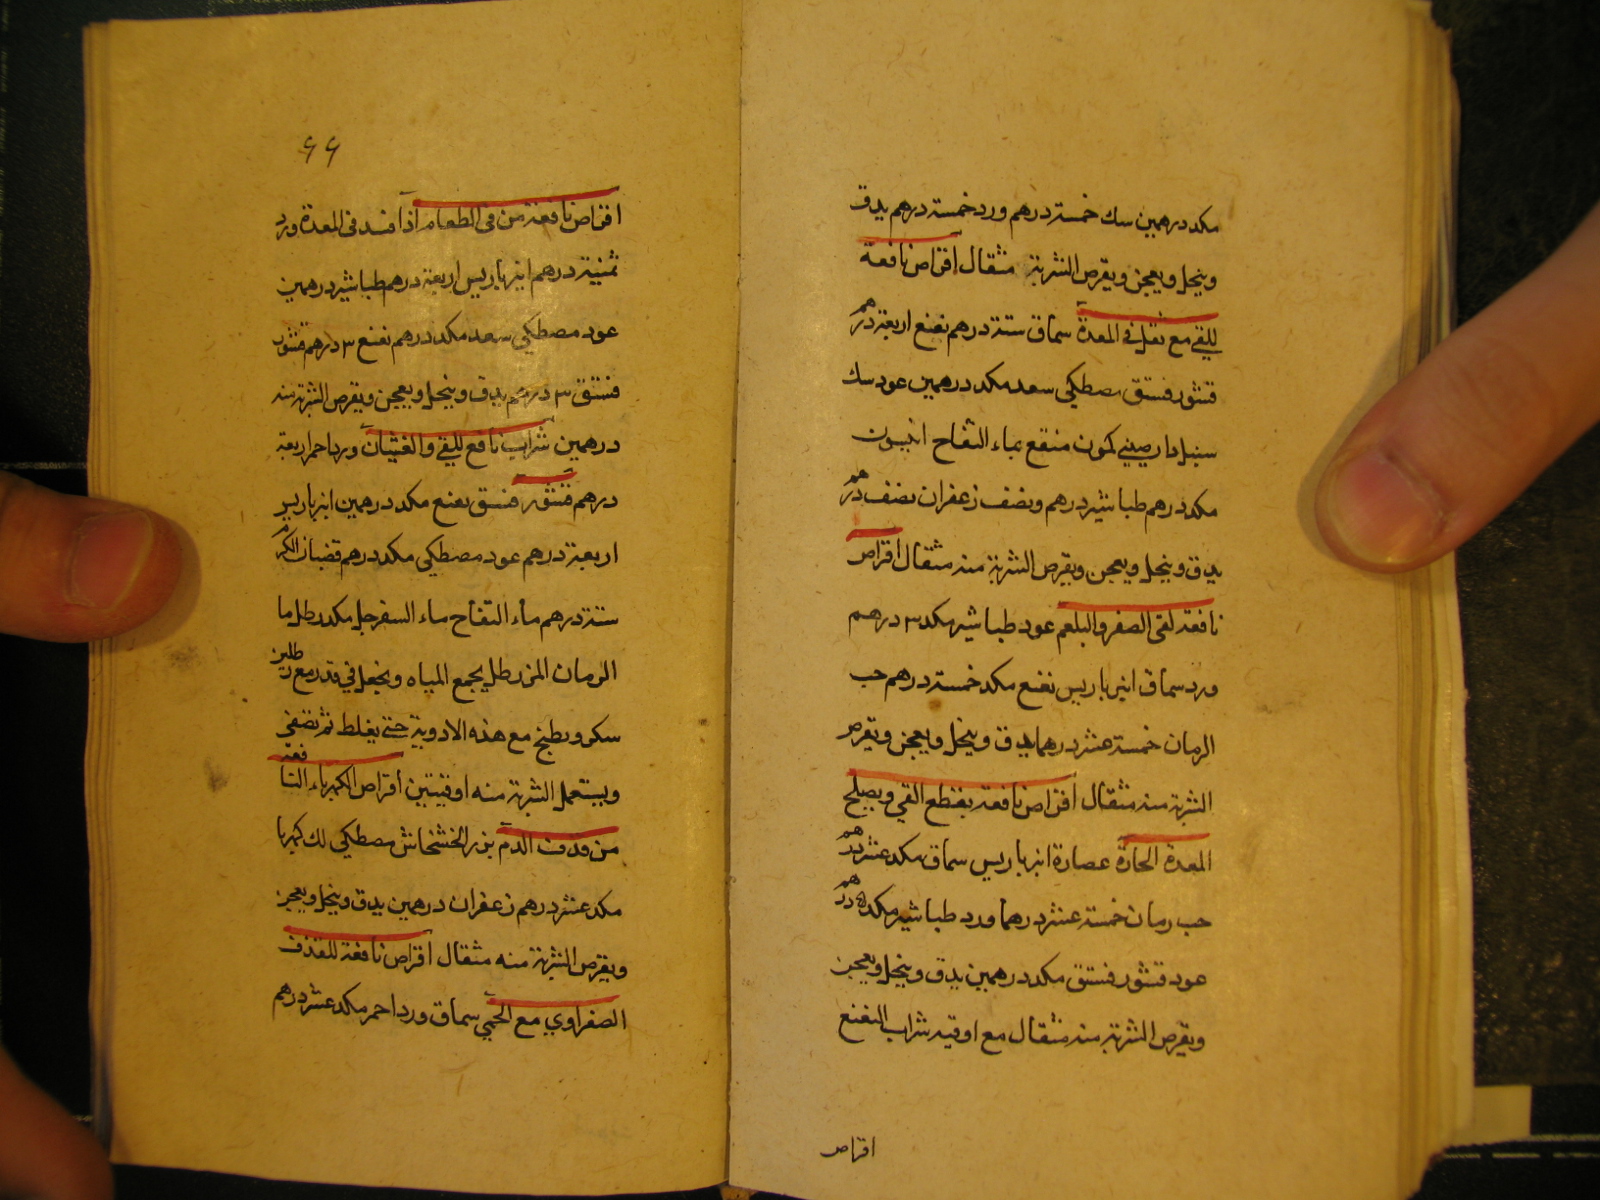 مكد درهمين سك خمسة درهم ورد خمسة درهم يدق
وينخل ويعجن ويقرص الشربة مثقال اقراص نافعة
للقي مع ثقل في المعدة سماق ستة درهم نعنع اربعة درهم
قشور فستق مصطكي سعد مكد درهمين عود سك
سنبل دارصيني كمون منقع بماء التفاح انيسون
مكد درهم طباشير درهم ونصف زعفران نصف درهم
يدق وينخل ويعجن ويقرص الشربة منه مثقال اقراص
نافعة لقي الصفر والبلغم عود طباشير مكد ٣ درهم
ورد سماق انبرباريس نعنع مكد خمسة درهم حب
الرمان خمسة عشر درهما يدق وينخل ويعجن ويقرص
الشربة منه مثقال اقراص نافعة بقطع القي ويصلح
المعدة الحارة عصارة انبرباريس سماق مكد عشر درهم
حب رمان خمسة عشر درهما ورد طباشير مكد ٥ درهم
عود قشور فستق مكد درهمين يدق وينخل ويعجن
ويقرص الشربة منه مثقال مع اوقيه شراب النعنع
اقراص
٩٩
اقراص نافعة من قي الطعام اذا فسد في المعدة ورد
ثمنية درهم انبرباريس اربعة درهم طباشير درهمين
عود مصطكي سعد مكد درهم نعنع ٣ درهم قشور
فستق ٣ درهم يدق وينخل ويعجن ويقرص الشربة منه
درهمين شراب نافع للقي والغثيان ورد احمر اربعة
درهم قشور فستق نعنع مكد درهمين انبرباريس
اربعة درهم عود مصطكي مكد درهم قضبان الكرم
ستة درهم ماء التفاح ماء السفرجل مكد رطل ما
الرمان المز رطل يجمع المياه ويجعل في قدر مع رطلين
سكر ويطبخ مع هذه الادوية حتى يغلط ثم يصفي
ويستعمل الشربة منه اوقيتين اقراص الكهرباء النافعة
من قذف الدم بزر الخشخاش مصطكي لك كهربا
مكد عشر درهم زعفران درهمين يدق وينخل ويعجن
ويقرص الشربة منه مثقال اقراص نافعة للقذف
الصفراوي مع الحمي سماق ورد احمر مكد عشر درهم